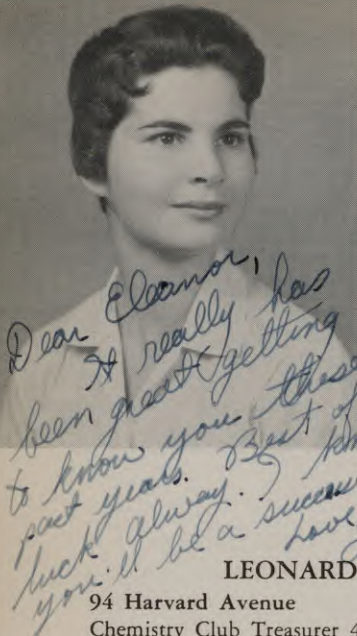 Dear Eleanor,
It really has
been great getting
to know you these
past years. Best of
luck alway. I
you'll be a success
Love
LEONARD
94 Harvard Avenue
Chemistry Club Treasurer 4